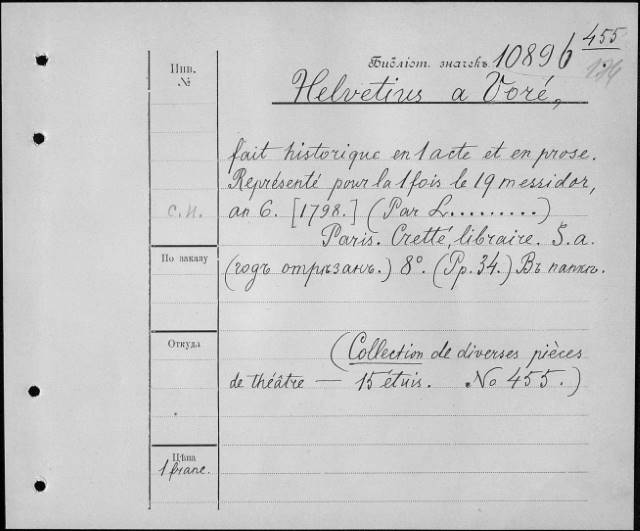 455
Библіот. значекъ 10896
Инв.
№
Helvetius a Voré,
fait historique en 1 acte et en prose.
Représenté pour la 1 fois le 19 messidor,
с.н.
an 6. [1798.] (Par L.........)
Paris. Cretté, libraire. S.a.
По заказу
(годъ отрѣзанъ.) 8°. (Pp. 34.) Въ папкѣ.
Откуда
(Collection de diverses pièces
de théâtre — 15 étuis. No 455.)
Цѣна
1 franc.